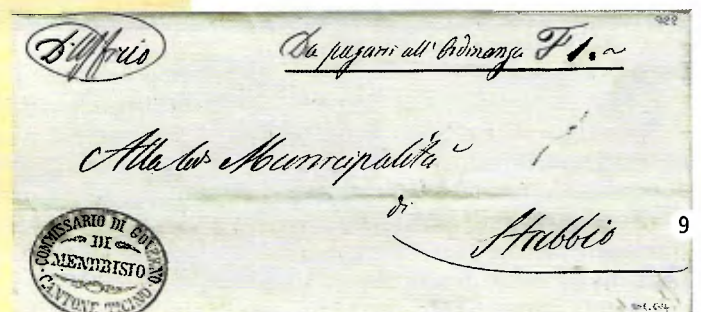 922
D'Ufficio
Da pagarsi all' Ordinanza F 1. ~
Alla Municipalità
di
Stabbio
9
COMMISSARIO DI GOVERNO
DI
MENDRISIO
CANTONE TICINO